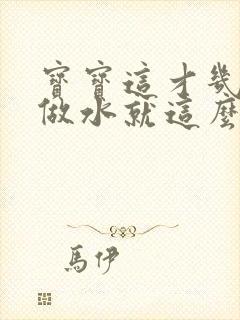 寶寶這才幾
做水就這麼
馬伊